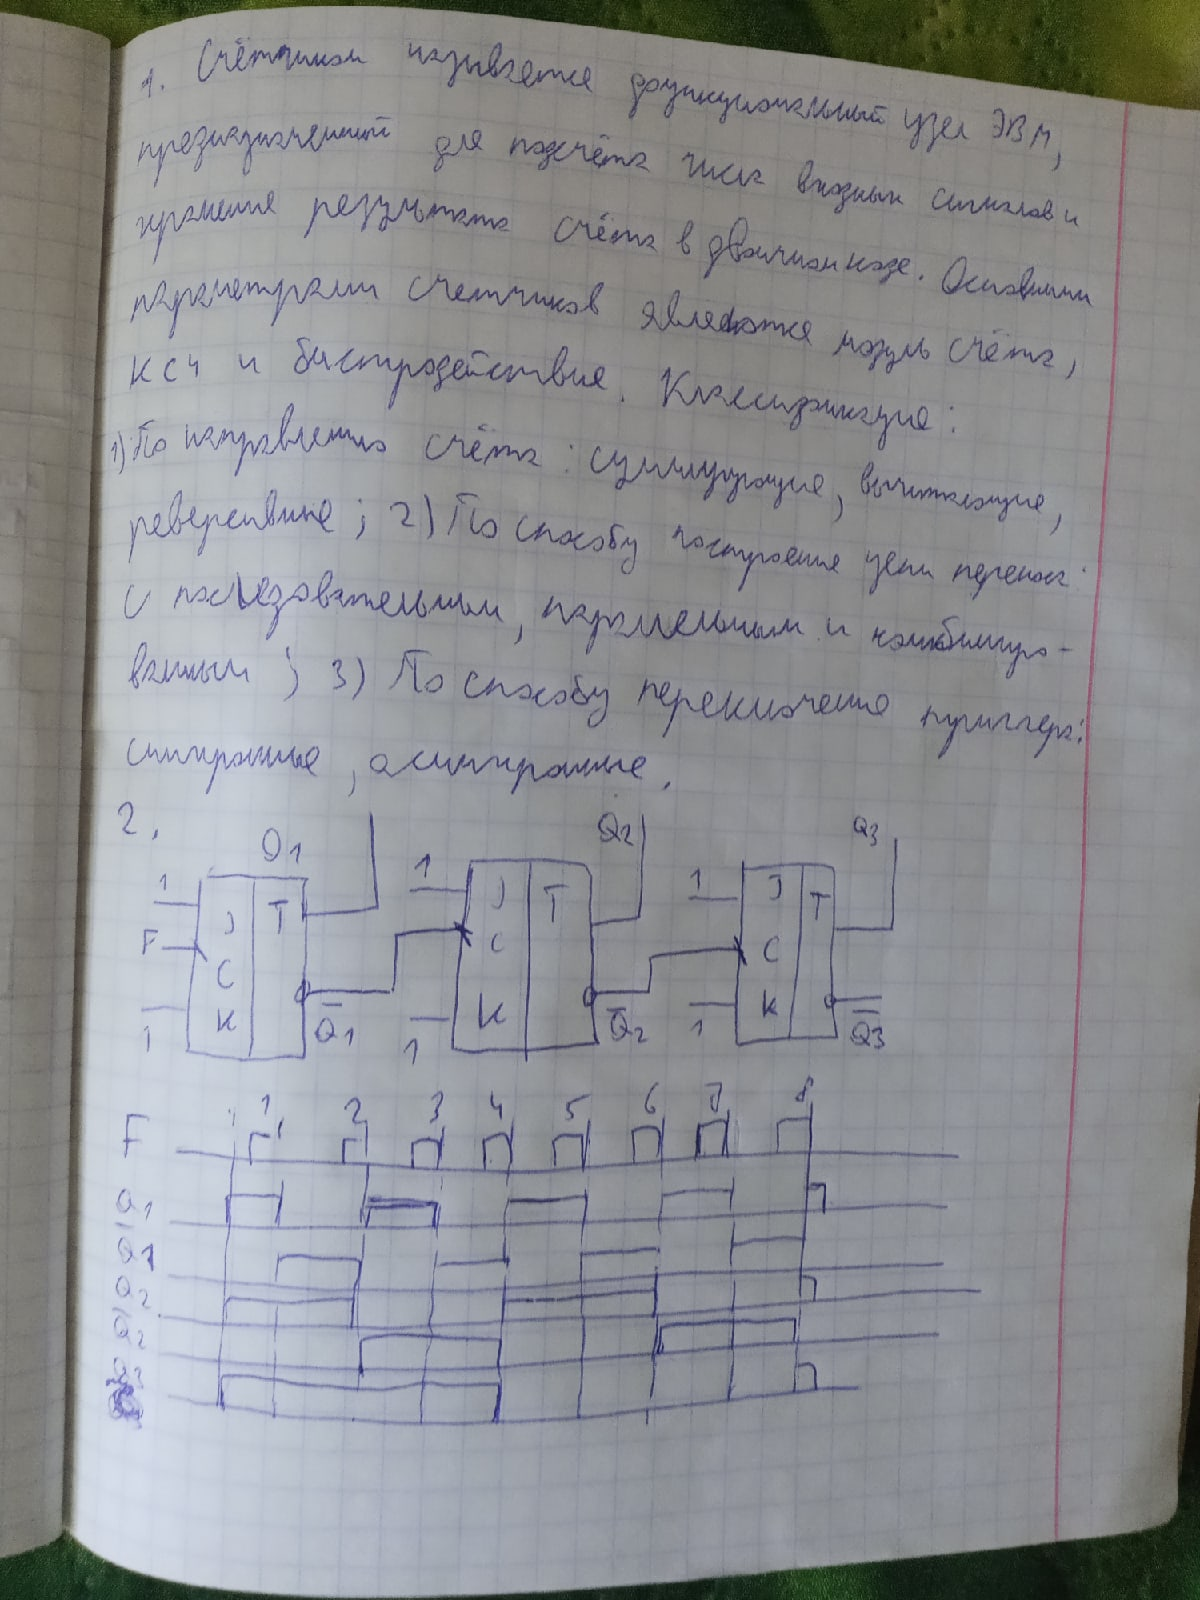 1. Счётчиком называется функциональный узел ЭВМ,
предназначенный для подсчёта числа входных сигналов и
хранения результата счёта в двоичном коде. Основными
параметрами счетчиков являются модуль счёта,
КСЧ и быстродействие. Классификация:
1) По направлению счёта: суммирующие, вычитающие,
реверсивные; 2) По способу построения цепи переноса:
с последовательным, параллельным и комбиниро-
ванным; 3) По способу переключения триггера:
синхронные, асинхронные.
2.
Q1 Q2 Q3
1 J T 1 J T 1 J T
F C C C
1 K Q̅1 1 K Q̅2 1 K Q̅3
1 2 3 4 5 6 7 8
F
Q1
Q̅1
Q2
Q̅2
Q3